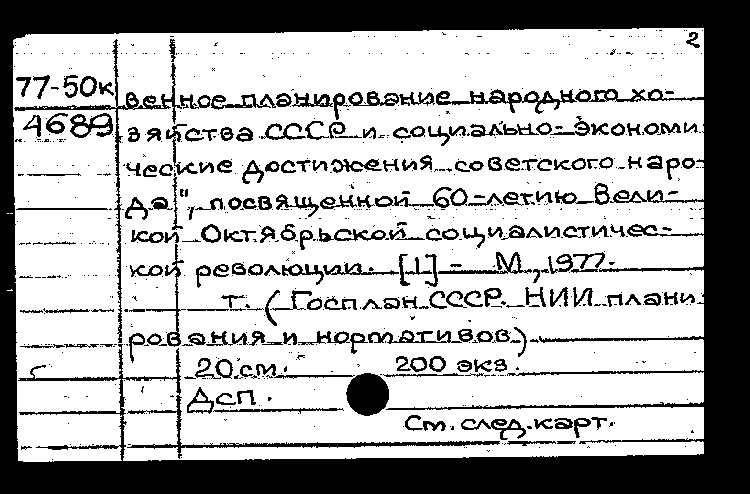 2
77-50к венное планирование народного хо-
4689 зяйства СССР и социально-экономи
ческие достижения советского наро-
да", посвященной 60-летию Вели-
кой Октябрьской социалистичес-
кой революции. [1] - М, 1977.
т. (Госплан СССР. НИИ плани
рования и нормативов)
20 см. 200 экз.
Дсп.
См. след. карт.